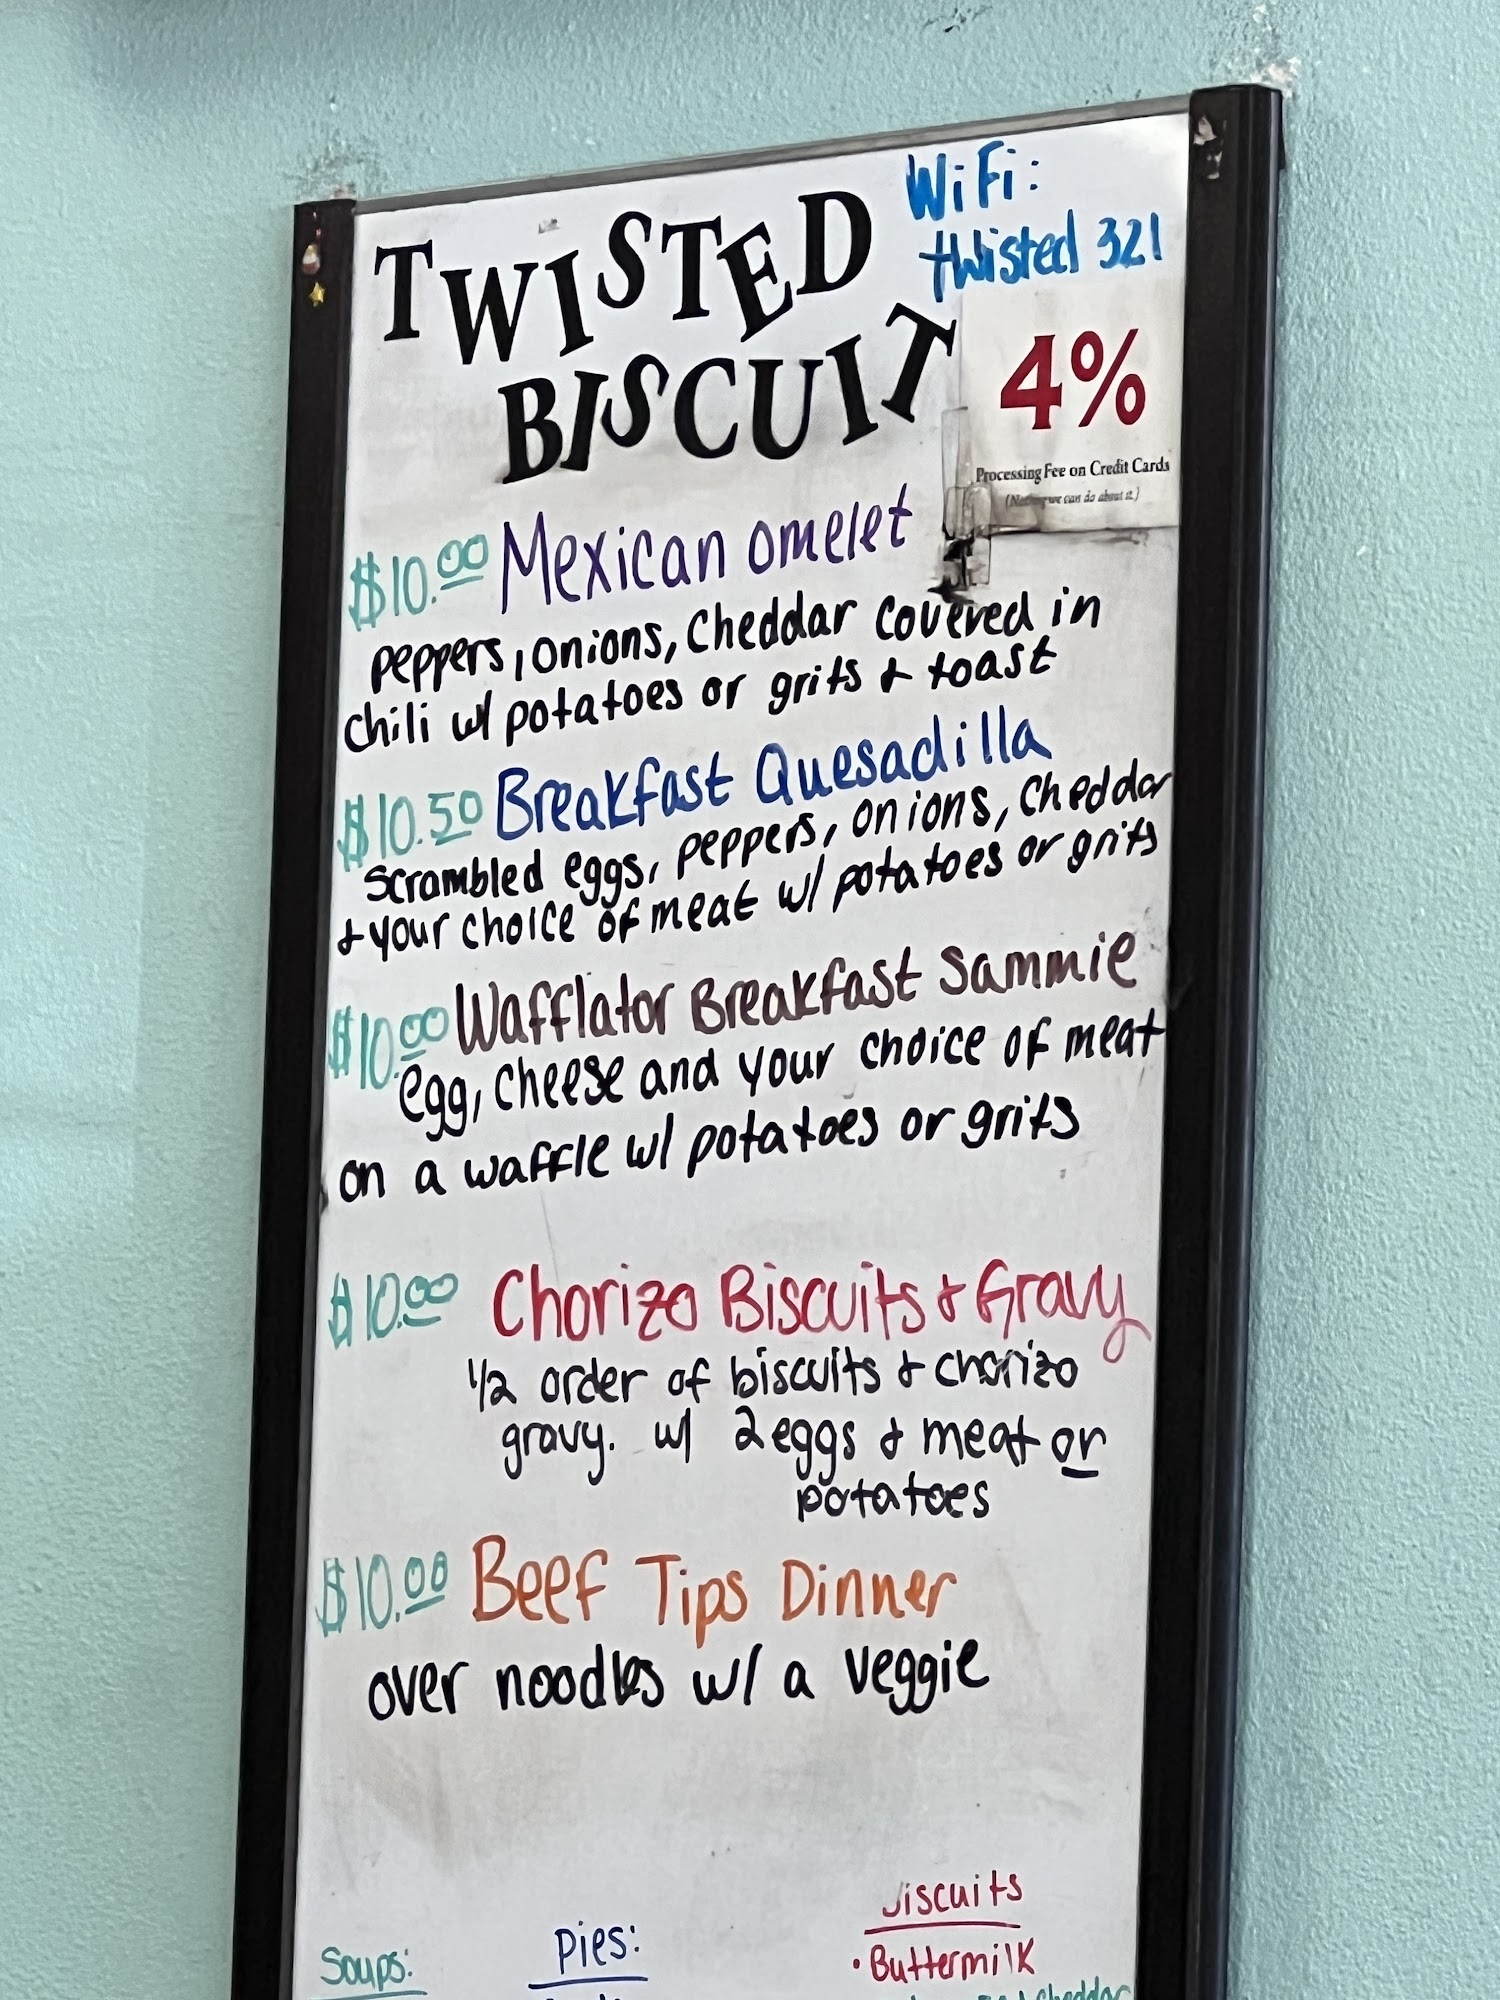 TWISTED
BISCUIT
WiFi:
twisted 321
4%
Processing Fee on Credit Cards
we can do about it.)
$10.00 Mexican omelet
peppers, onions, Cheddar covered in
chili w/ potatoes or grits & toast
$10.50 Breakfast Quesadilla
scrambled eggs, peppers, onions, cheddar
& your choice of meat w/ potatoes or grits
$10.00 Wafflator Breakfast Sammie
egg, cheese and your choice of meat
on a waffle w/ potatoes or grits
$10.00 Chorizo Biscuits & Gravy
1/2 order of biscuits & chorizo
gravy. w/ 2 eggs & meat or
potatoes
$10.00 Beef Tips Dinner
over noodles w/ a veggie
Soups:
Pies:
Biscuits
• Buttermilk
Cheddar